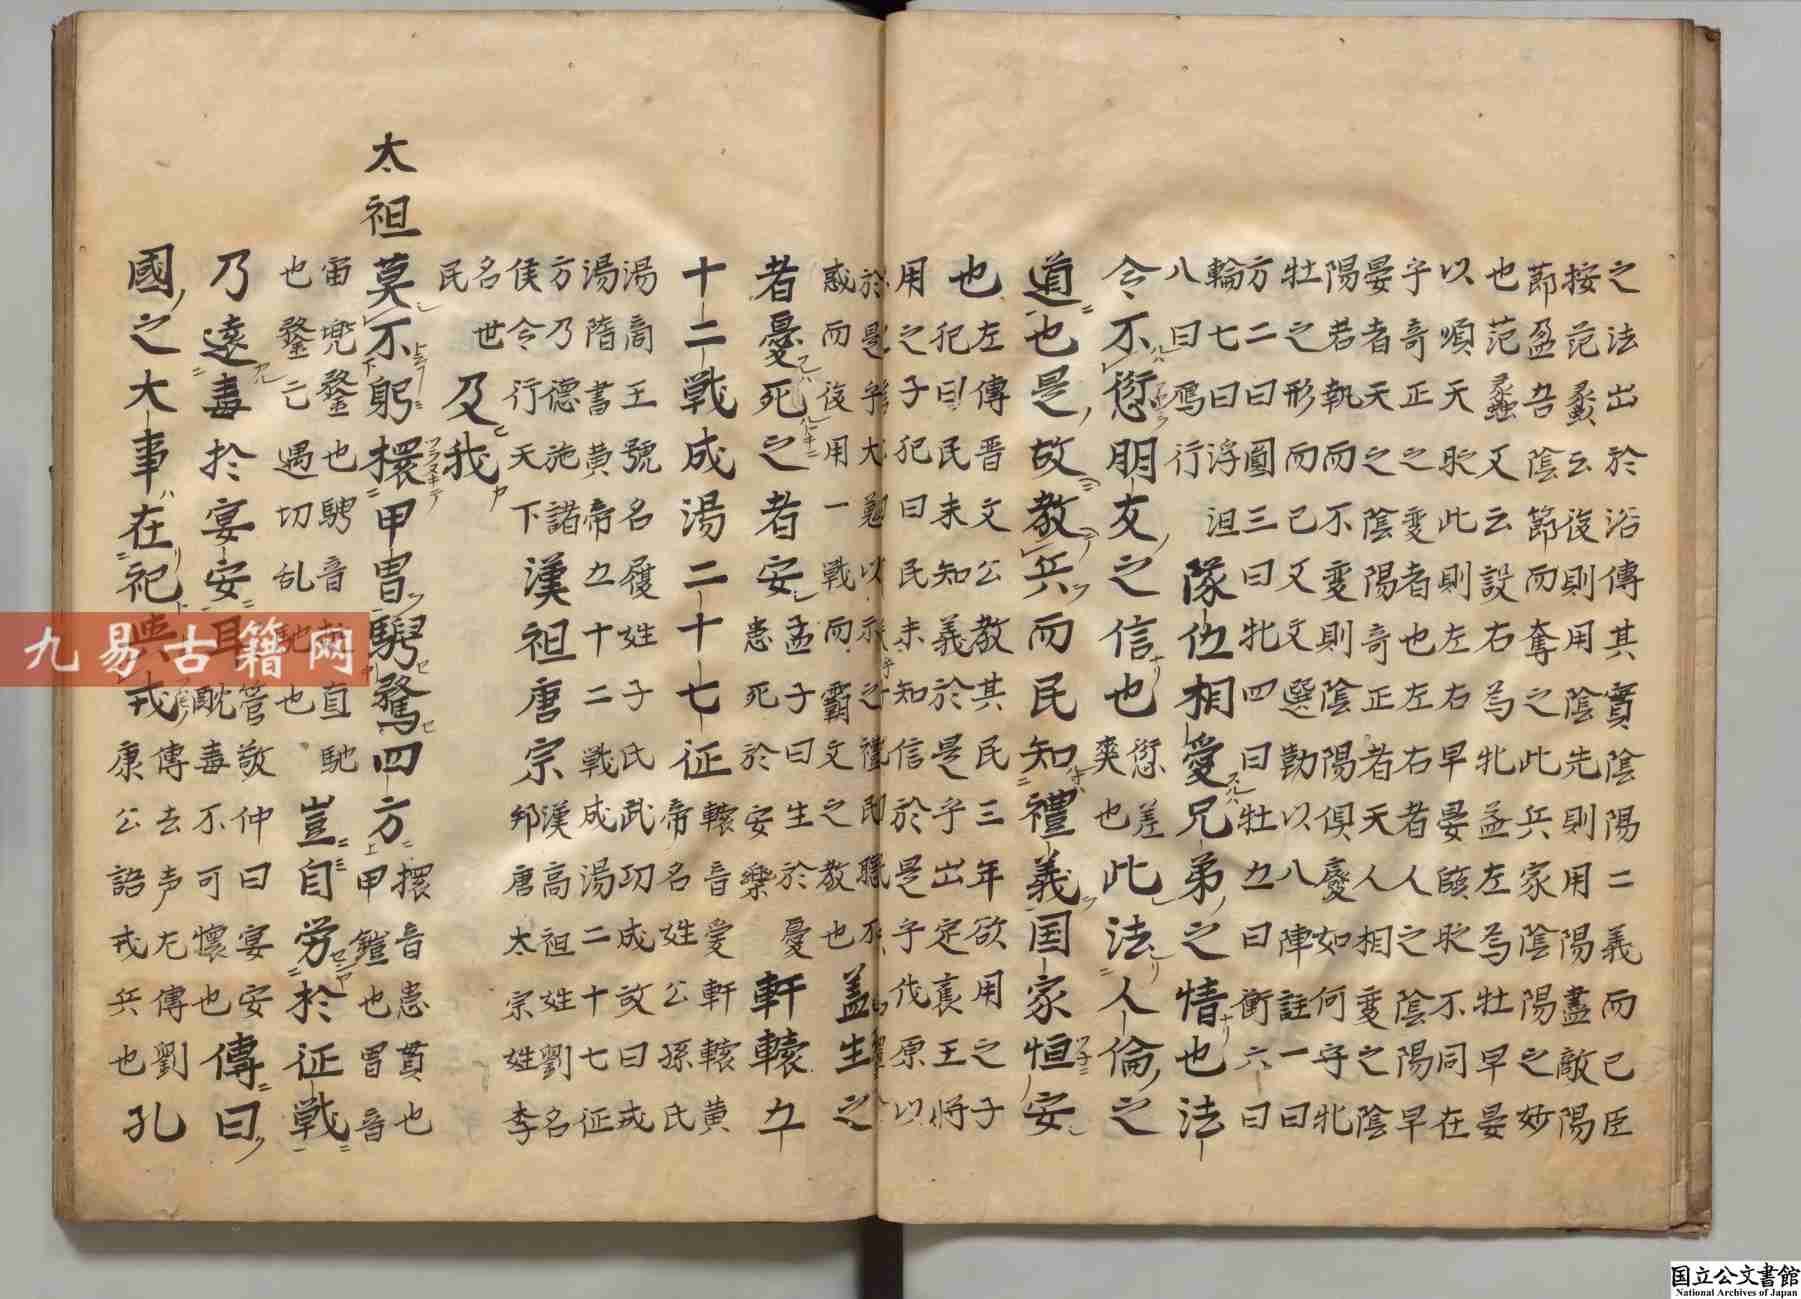 之法出於沿傳其實陰陽二義而已臣
按范蠡云後則用陰先則用陽盡敵陽
節盈吾陰節而奪之此兵家陰陽之妙
也范蠡又云設右為牝益左為牡早晏
以順天此則左右早晏時不同在
乎奇正之變者也左右者人之陰陽早
晏者天之陰陽奇正者天人相變之陰
陽若執而不變則陰陽俱廢如何守牝
牡之形而已又文選勒以八陣註一曰
方二曰圓三曰牝四曰牡五曰衝六曰
輪七曰浮沮
八曰鴈行
隊伍相愛兄弟之情也法
令不愆朋友之信也
愆差
爽也
此法人倫之
道也是故教兵而民知禮義国家恒安
也
左傳晋文公教其民三年欲用之子
犯曰民未知義於是乎出定襄王將
用之子犯曰民未知信於是乎伐原以
惑而後用一戰而霸文之教也
蓋生之
者憂死之者安
孟子曰生於憂
患死於安樂
軒轅五
十二戰成湯二十七征
轅音爰軒轅黄
帝名姓公孫氏
湯商王號名履姓子氏武功成故曰成
湯隋書黄帝五十二戰成湯二十七征
方乃德施諸
侯令行天下
漢祖唐宗
漢高祖姓劉名
邦唐太宗姓李
名世
民
及我
太祖莫不躬擐甲冑騁騖四方
擐音患貫也
甲鎧也冑音
宙兜鍪也騁音
也鍪亡遇切乱馳也
豈自労於征戰
乃遠毒於宴安耳
管敬仲曰宴安
酖毒不可懷也
傳曰
國之大事在祀與戎
傳去声左傳劉
康公語戎兵也
孔
九易古籍网
国立公文書館
National Archives of Japan